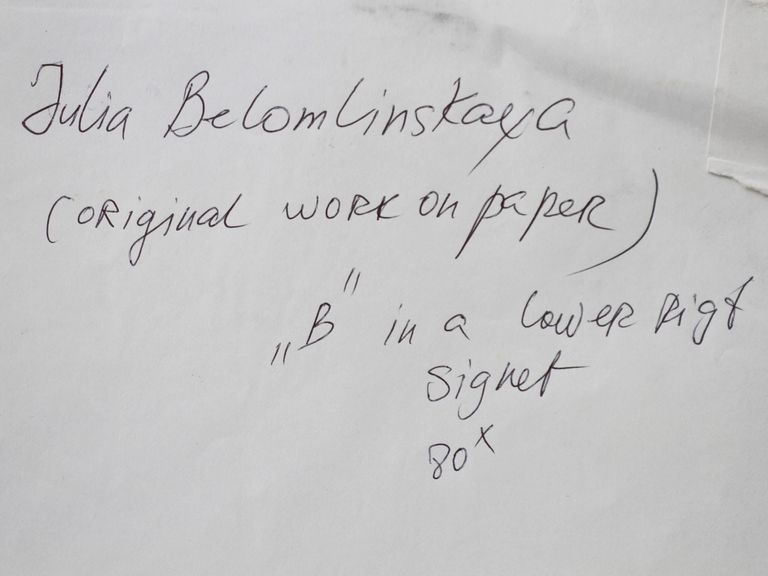 Julia Belomlinskaya
(original work on paper)
„B" in a lower rigt
signet
80x